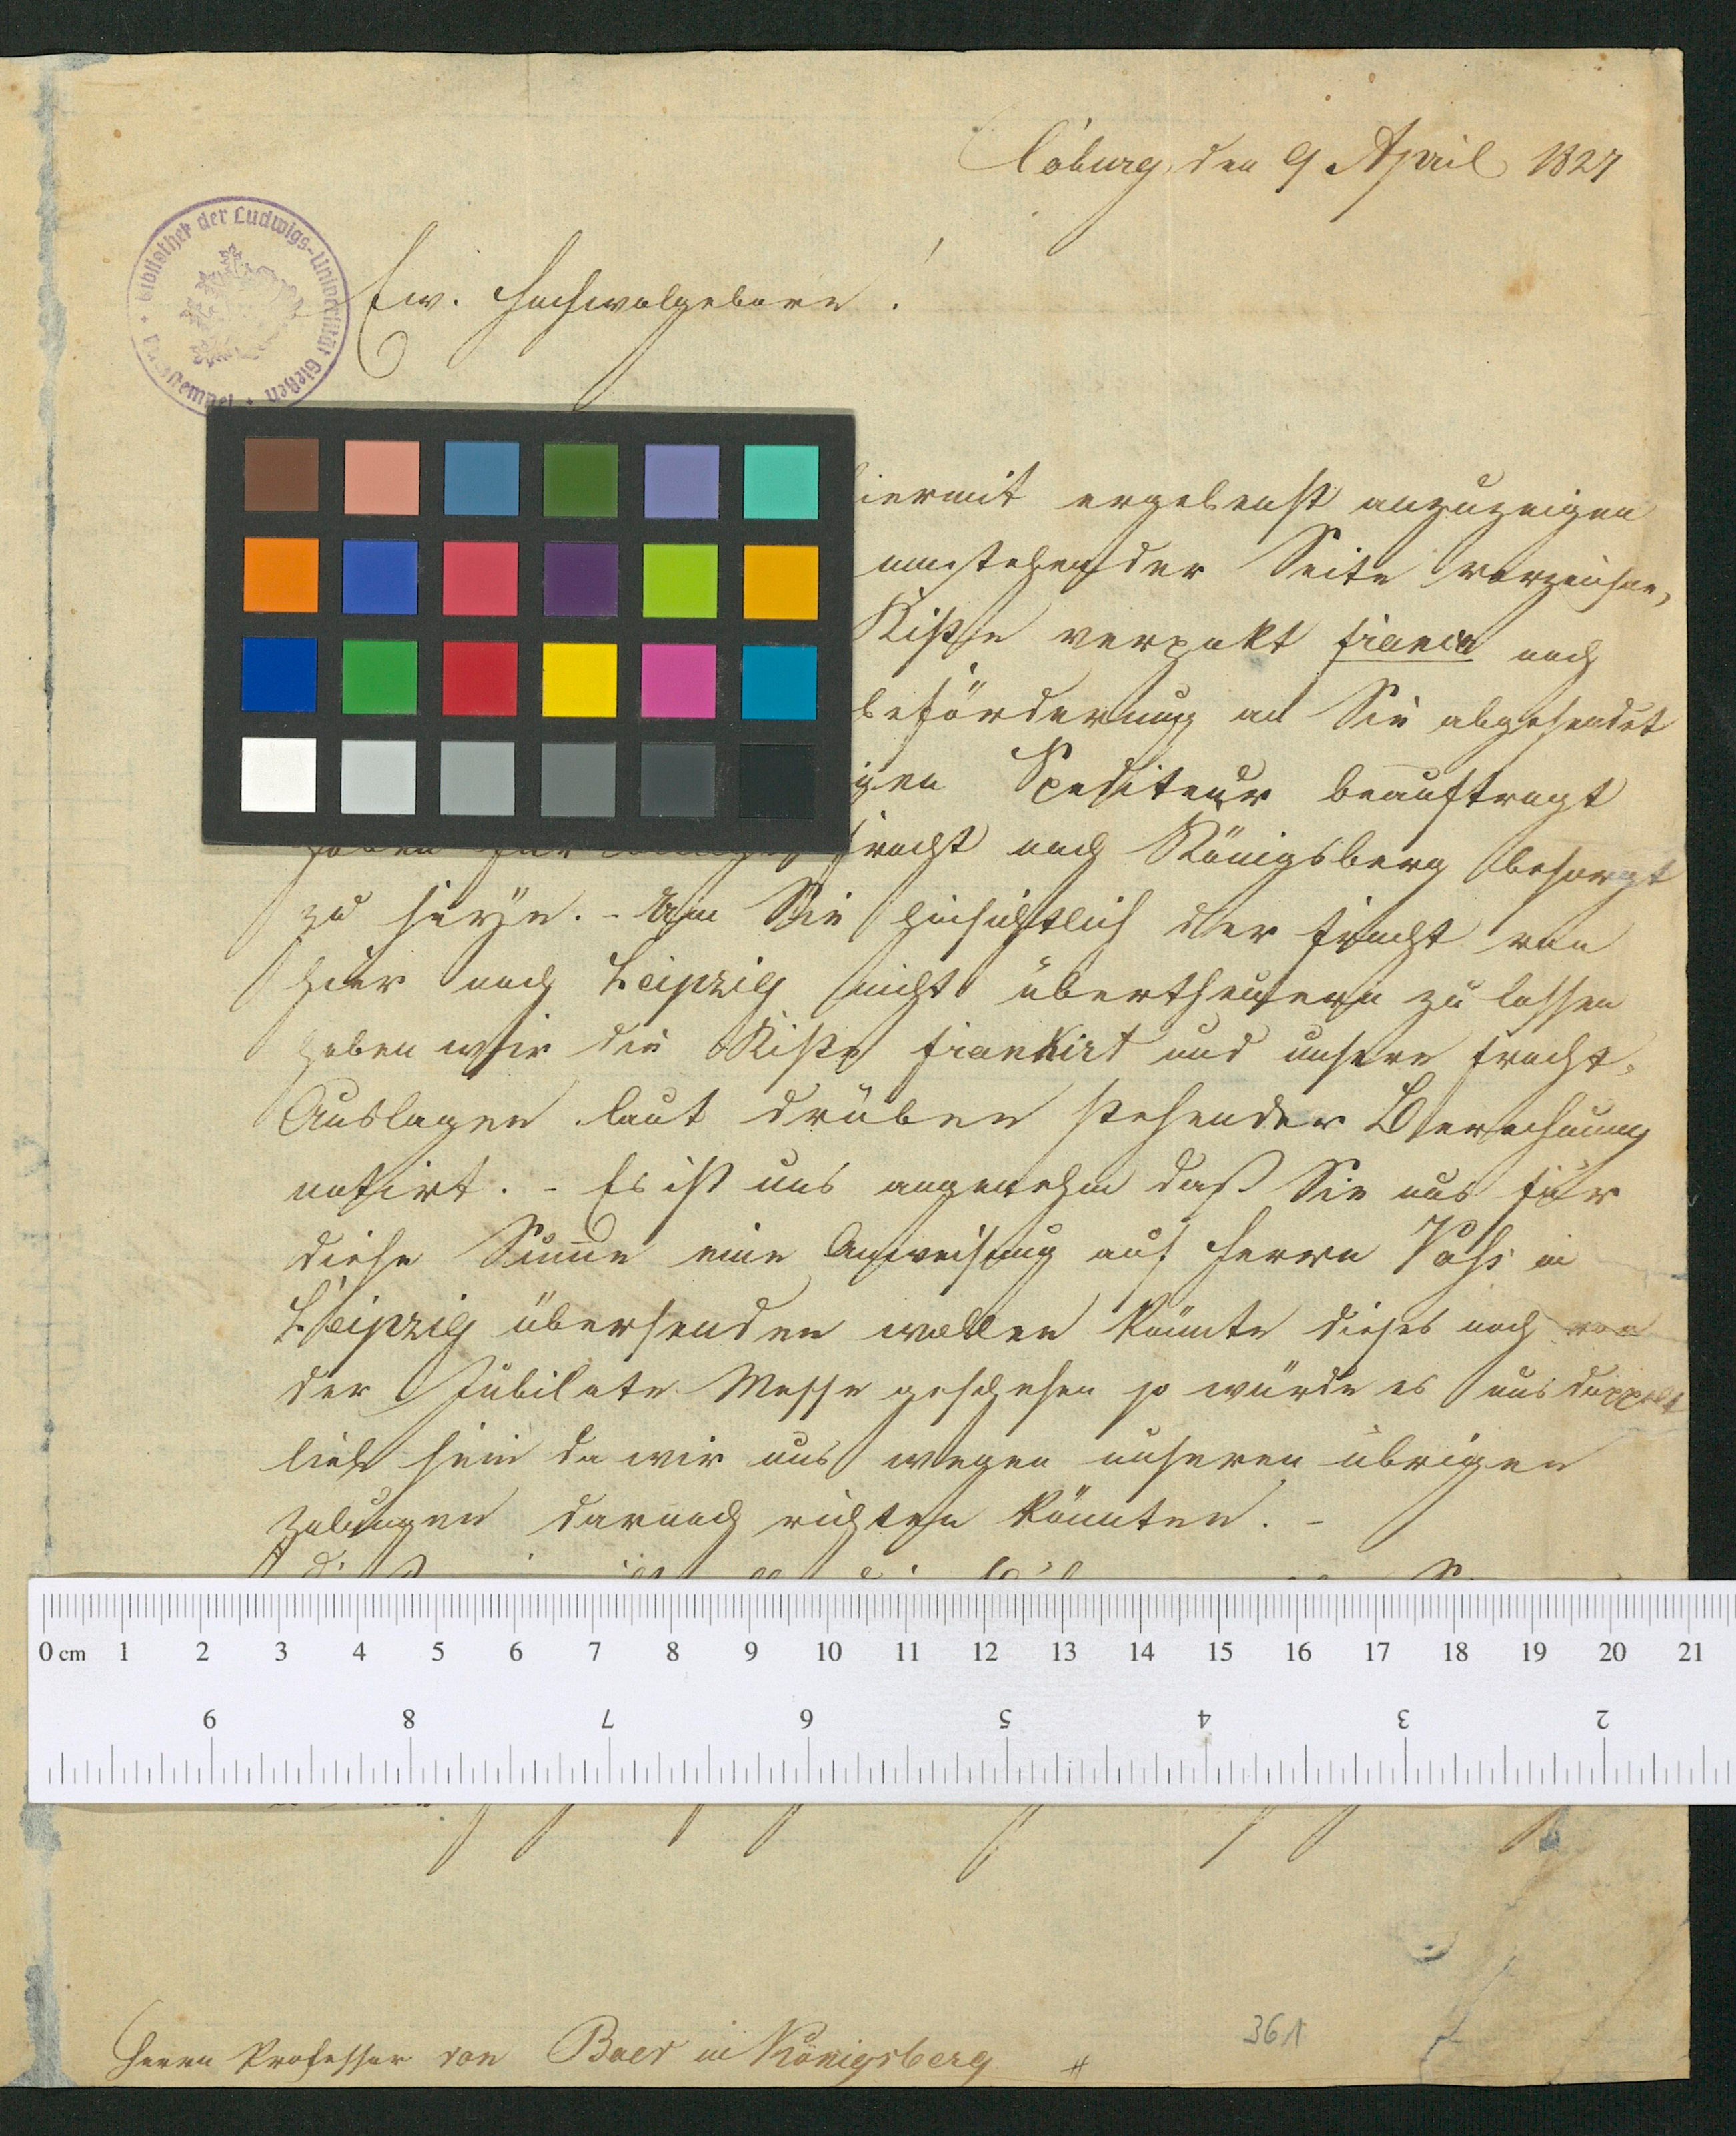 Coburg, den 9 April 1827
Bibliothek der Ludwigs-Universität Gießen
Ew. Hochwolgeboren!
hiermit ergebenst anzuzeigen
umstehender Seite verzeichne-
Kiste verpakt franco nach
beförderung an Sie abgesendet
Spediteur beauftragt
haben für Fracht nach Königsberg besorgt
zu seyn. - Um Sie hinsichtlich der Fracht von
hier nach Leipzig nicht übertheuern zu lassen
haben wir die Kiste frankirt und unsere Fracht-
Auslagen laut drüben stehender Berechnung
notirt. - Es ist uns angenehm daß Sie uns für
diese Summe eine Anweisung auf Herrn Voß in
Leipzig übersenden wollen könnte dieses noch vor
der Jubilate Messe geschehen so würde es uns doppelt
lieb sein da wir uns wegen unseren übrigen
Zalungen darnach richten könnten. -
0 cm 1 2 3 4 5 6 7 8 9 10 11 12 13 14 15 16 17 18 19 20 21
9 8 7 6 5 4 3 2
Herrn Professor von Baer in Königsberg
361